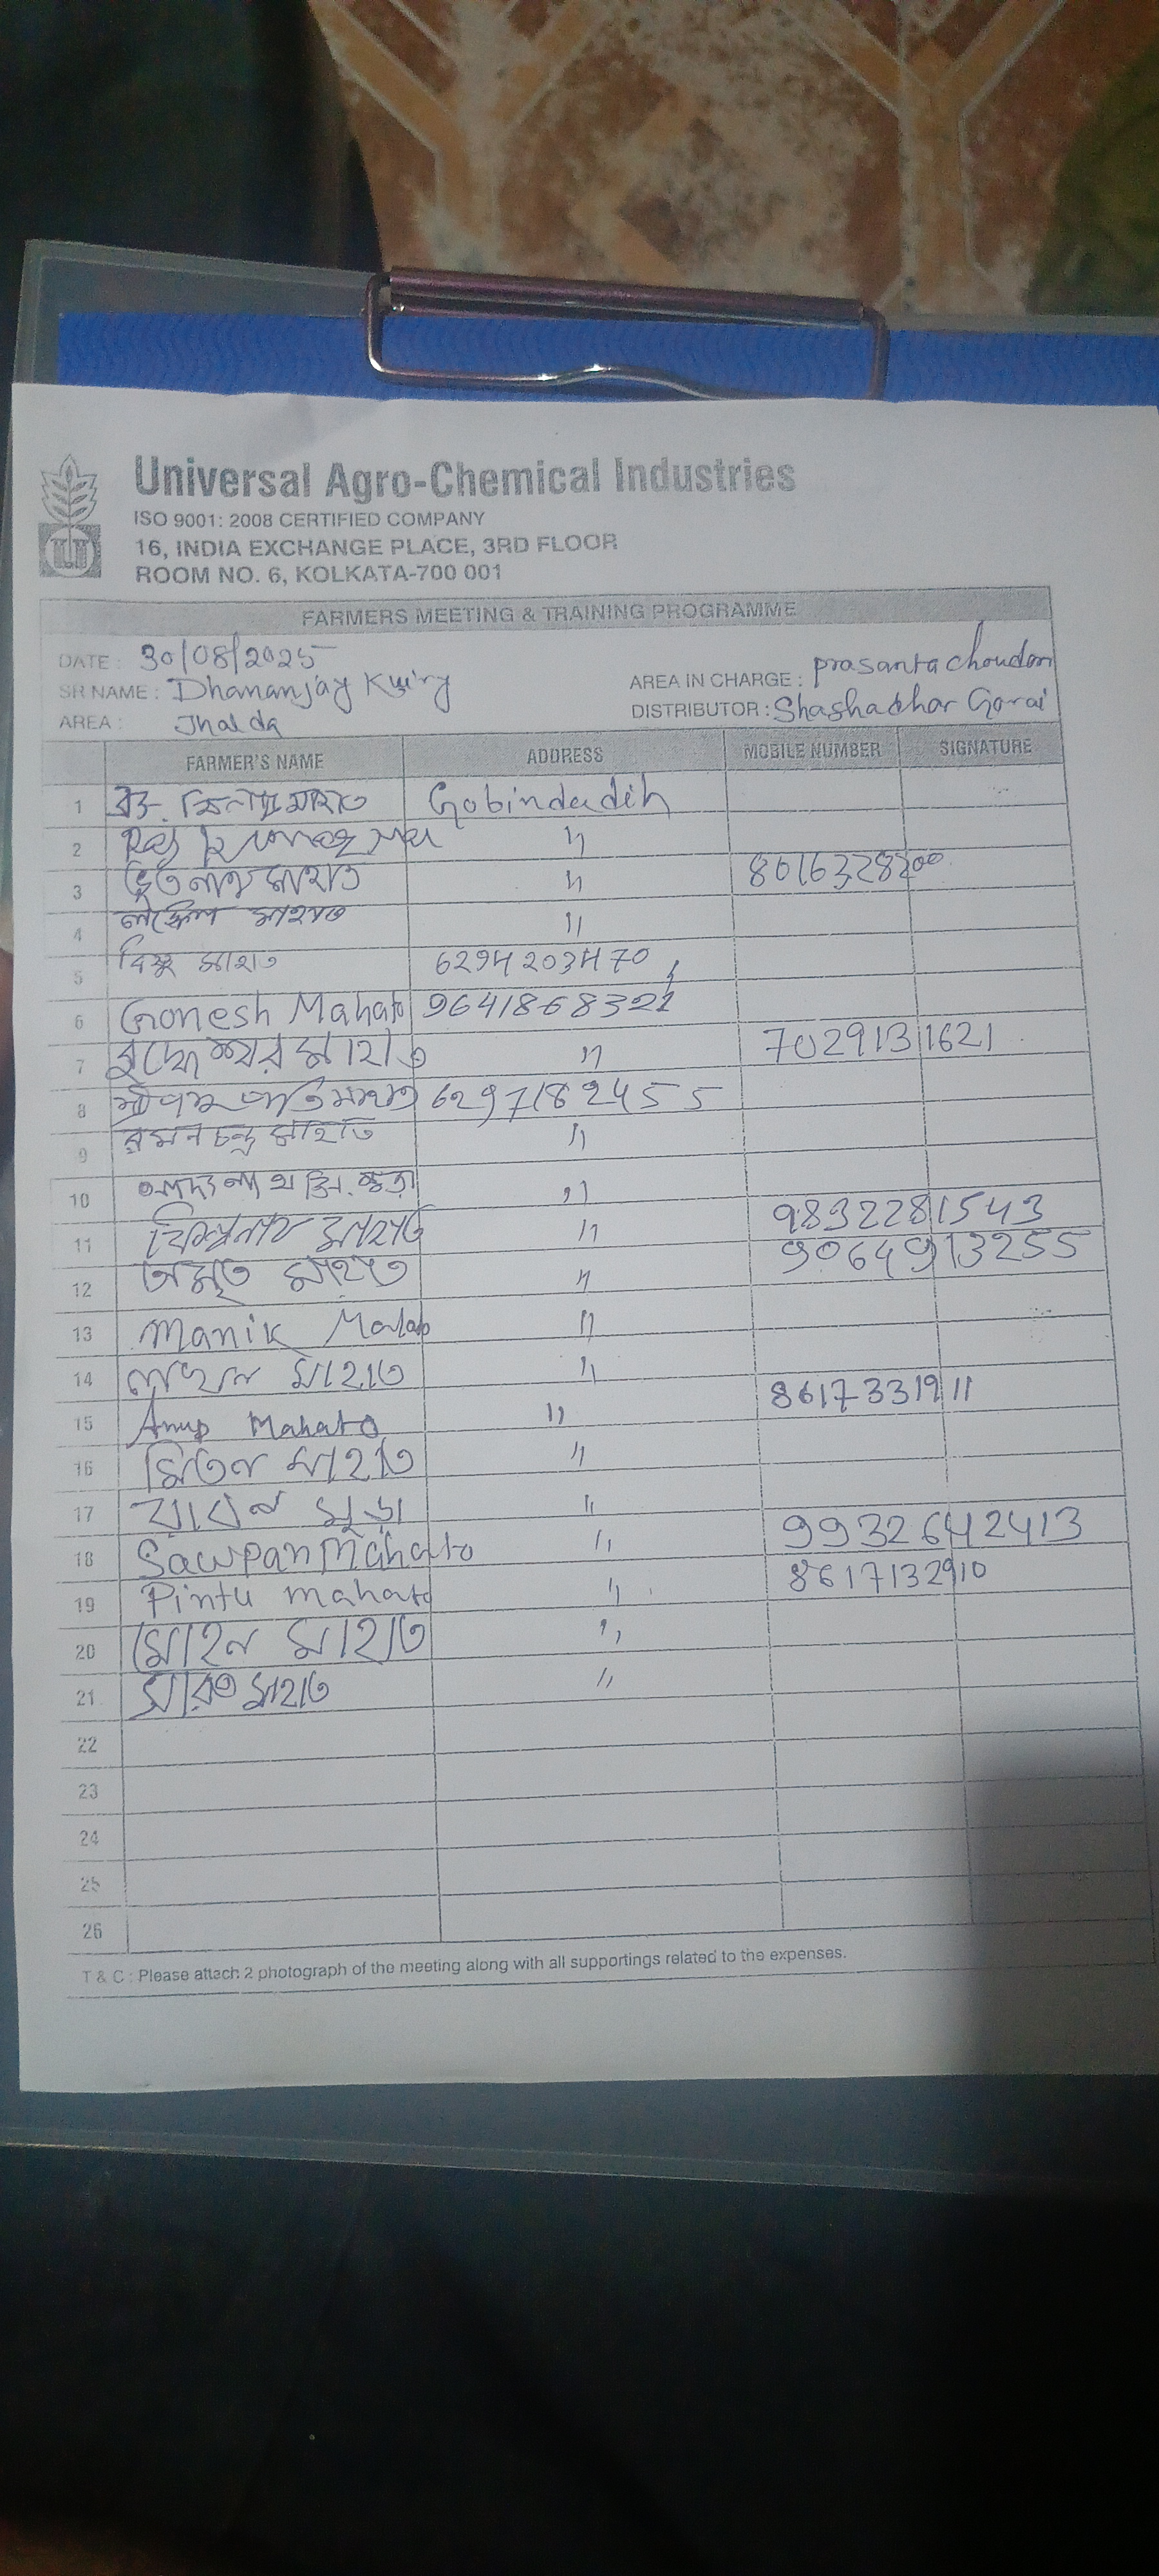 Universal Agro-Chemical Industries
ISO 9001: 2008 CERTIFIED COMPANY
16, INDIA EXCHANGE PLACE, 3RD FLOOR
ROOM NO. 6, KOLKATA-700 001
FARMERS MEETING & TRAINING PROGRAMME
DATE : 30/08/2025
SR NAME : Dhananjay AREA IN CHARGE : prasanta
AREA : Jhalda DISTRIBUTOR : Shashadhar Gorai
FARMER'S NAME ADDRESS MOBILE NUMBER SIGNATURE
1 মাহাত Gobindadih
2 "
3 ভুতনাথ মাহাত "
4 মাহাত "
5 মাহাত 6294203470
6 Gonesh Mahato
7 মাহাত " 7029131621
8 6297182455
9 চন্দ্র মাহাত "
10 "
11 মাহাত " 9832281543
12 অমৃত মাহাত " 9064913255
13 Manik "
14 মাহাত "
15 Anup Mahato " 8617331911
16 মিতন মাহাত "
17 মুড়া "
18 Sawpan Mahato " 9932642413
19 Pintu mahato " 8617132910
20 মোহন মাহাত "
21 মাহাত "
22
23
24
25
26
T & C : Please attach 2 photograph of the meeting along with all supportings related to the expenses.